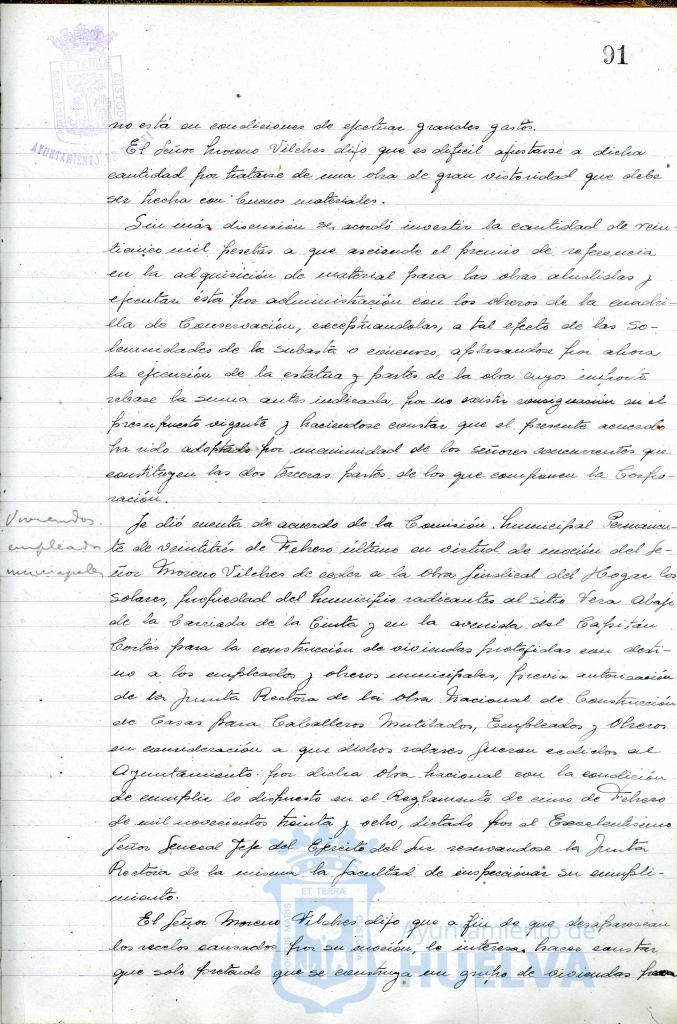 91
no está en condiciones de efectuar grandes gastos.
El Señor Moreno Vilches dijo que es difícil ajustarse a dicha
cantidad por tratarse de una obra de gran vistosidad que debe
ser hecha con buenos materiales.
Sin más discusión se acordó invertir la cantidad de vein-
ticinco mil pesetas a que asciende el premio de referencia
en la adquisición de material para las obras aludidas y
ejecutar ésta por administración con los obreros de la cuadri-
lla de Conservación, exceptuandolas, a tal efecto de las So-
lemnidades de la subasta o concurso, aplazandose por ahora
la ejecución de la estatua y partes de la obra cuyo importe
rebase la suma antes indicada, por no existir consignación en el
presupuesto vigente y haciendose constar que el presente acuerdo
ha sido adoptado por unanimidad de los señores concurrentes que
constituyen las dos terceras partes de los que componen la Corpo-
ración.
Viviendas
empleados
municipales
Se dió cuenta de acuerdo de la Comisión Municipal Permanen-
te de veintitrés de Febrero último en virtud de moción del Se-
ñor Moreno Vilches de ceder a la Obra Sindical del Hogar los
solares, propiedad del Municipio radicantes al sitio Vera Abajo
de la Barriada de la Cinta y en la avenida del Capitán
Cortés para la construcción de viviendas protegidas con desti-
no a los empleados y obreros municipales, previa autorización
de la Junta Rectora de la Obra Nacional de Construcción
de Casas para Caballeros Mutilados, Empleados y Obreros
en consideración a que dichos solares fueron cedidos al
Ayuntamiento por dicha Obra Nacional con la condición
de cumplir lo dispuesto en el Reglamento de cinco de Febrero
de mil novecientos treinta y ocho, dictado por el Excelentísimo
Señor General Jefe del Ejército del Sur reservandose la Junta
Rectora de la misma la facultad de inspeccionar su cumpli-
miento.
El Señor Moreno Vilches dijo que a fin de que desaparezcan
los recelos causados por su moción, le interesa hacer constar
que solo pretende que se construya un grupo de viviendas para
AYUNTAMIENTO DE
ET TERRÆ
CUSTODIA
Ayuntamiento de
HUELVA